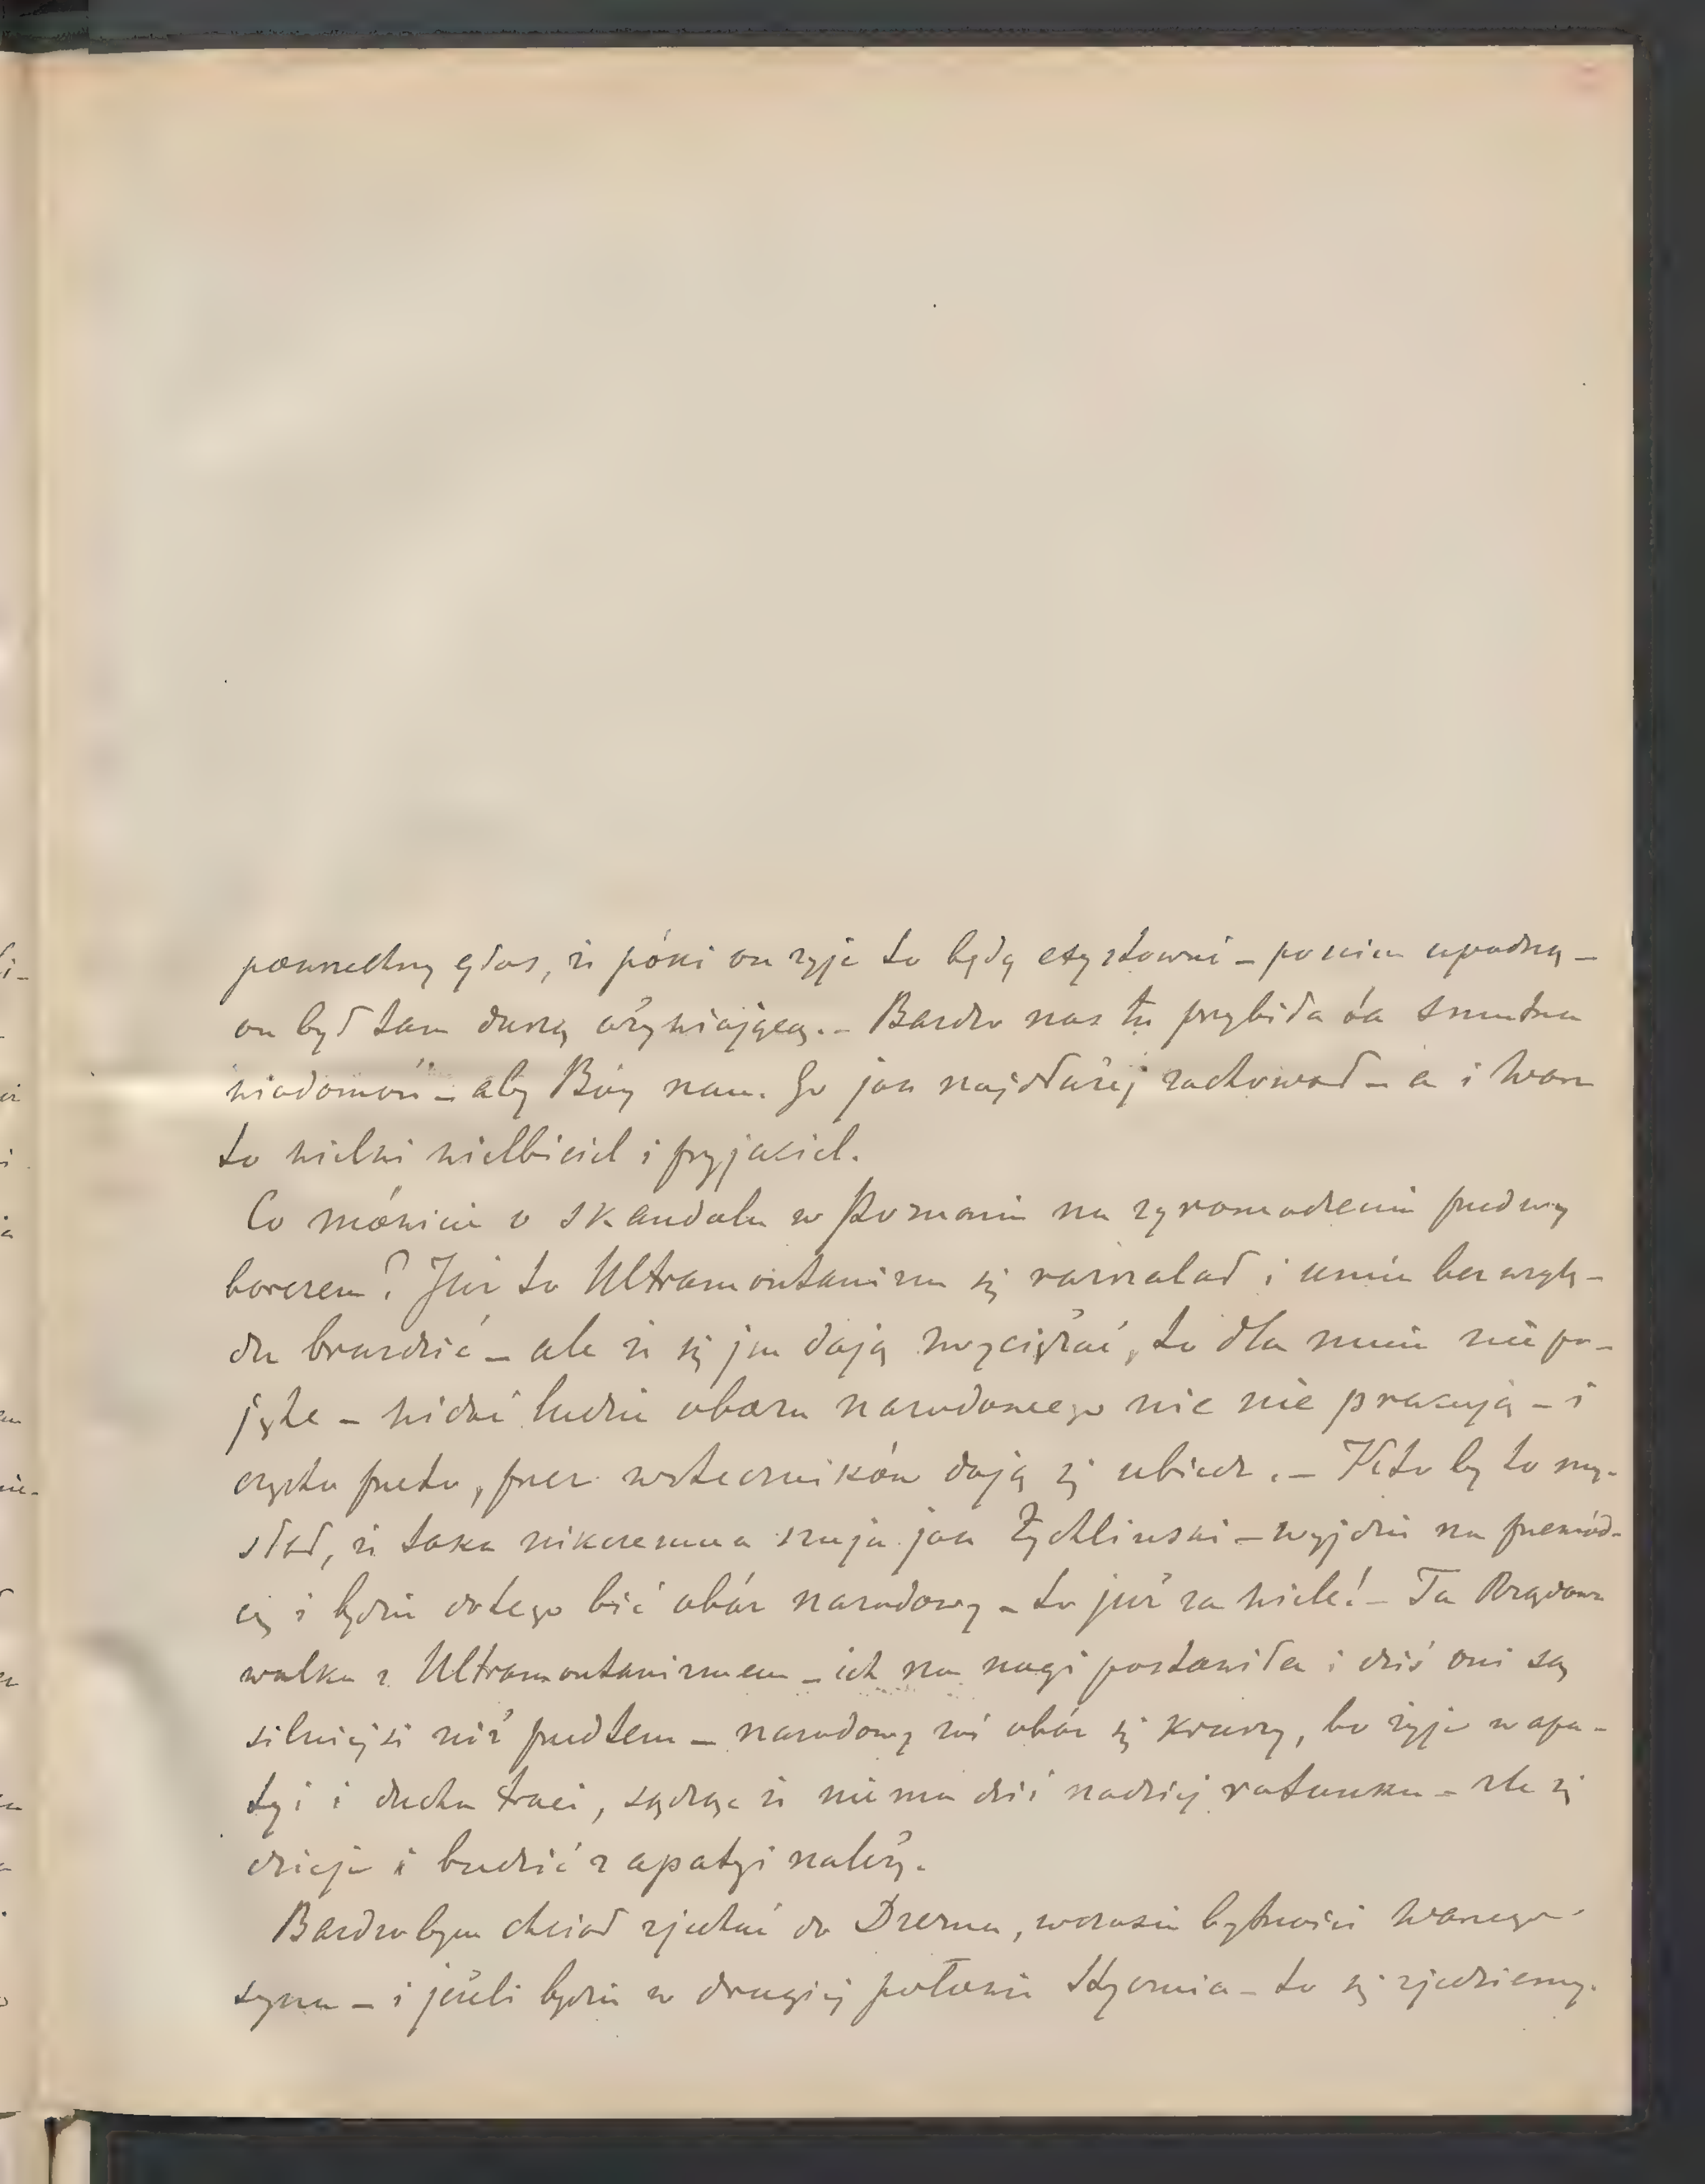 powszechny głos, że póki on żyje to będą egzystowni – po nim upadną –
on był tam duszą ożywiającą. – Bardzo nas tu przybiła ta smutna
wiadomość – aby Bóg nam Go jak najdłużej zachował – a i Wasz
to wielki wielbiciel i przyjaciel.
Co mówicie o skandalu w Poznaniu na zgromadzeniu przedwy
borczem? Już to Ultramontanizm się rozszalał i umie bez wzglę–
du bruździć – ale że się jm dają zwyciężać, to dla mnie niepo–
jęte – widać ludzie obozu narodowego nic nie pracują – i
czysto przeto, przez wsteczników dają się ubiedz. – Kto by to my–
ślał, że taka nikczemna szuja jak Żychliński – wyjdzie na przewód–
cę i będzie dotego bić obóz narodowy – to już za wiele! – Ta Rządowa
walka z Ultramontanizmem – ich na nogi postawiła i dziś oni są
silniejsi niż przedtem – narodowy zaś obóz się kruszy, bo żyje w apa–
tyi i ducha traci, sądząc że niema dziś nadziej ratunku – źle się
dzieje i budzić z apatyi należy.
Bardzobym chciał zjechać do Drezna, wczasie bytności Waszego
syna – i jeżeli będzie w drugiej połowie Stycznia – to się zjedziemy.